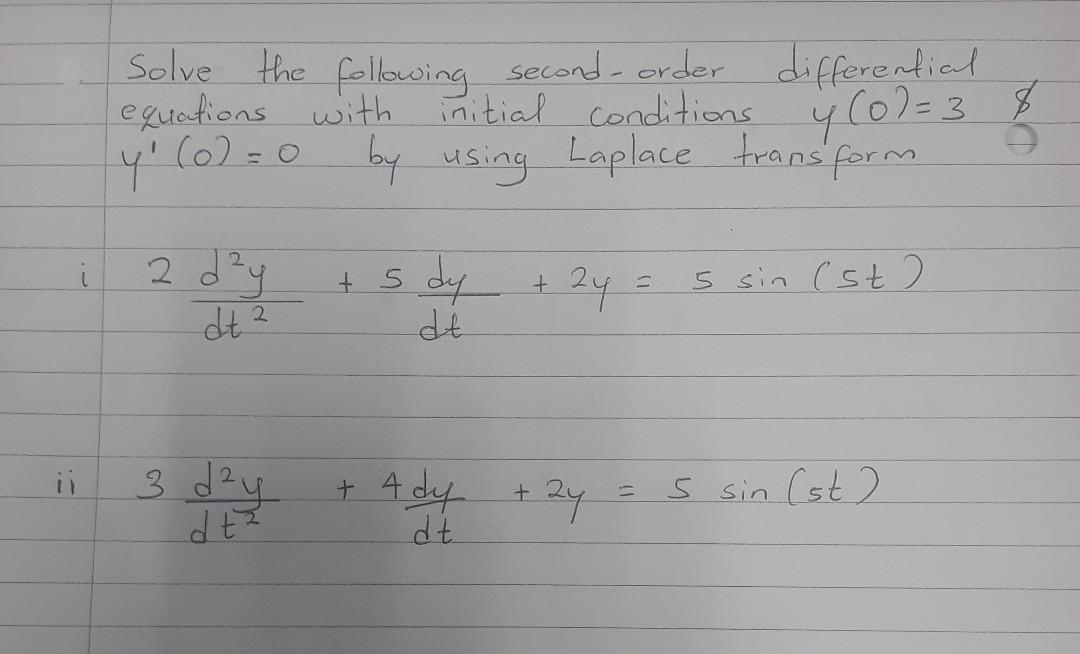 Solve the following second-order differential
equations with initial conditions y(0)=3 &
y'(0)=0 by using Laplace transform
i 2 d²y/dt² + 5 dy/dt + 2y = 5 sin (5t)
ii 3 d²y/dt² + 4 dy/dt + 2y = 5 sin (5t)